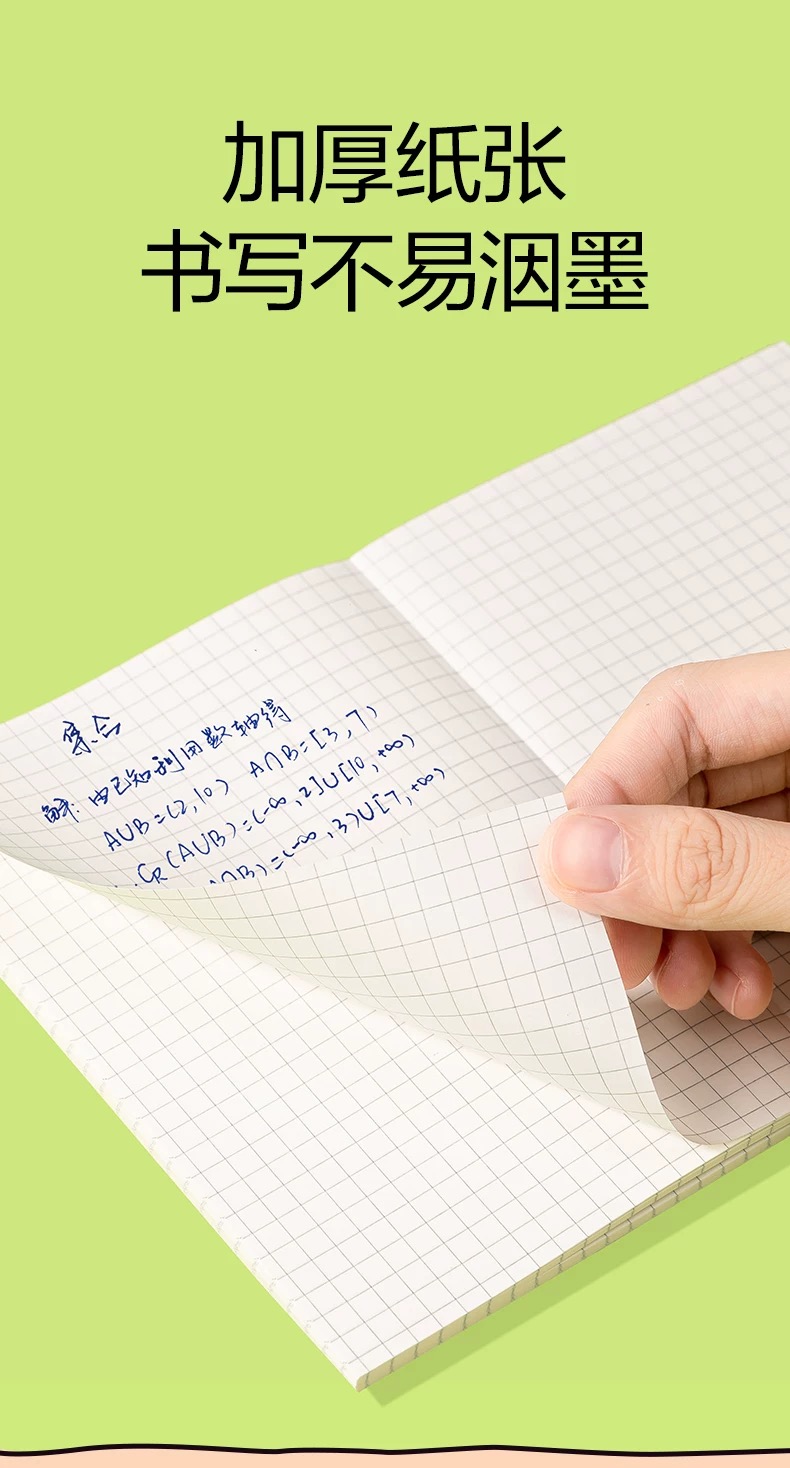 加厚纸张
书写不易洇墨
集合
解:由已知利用数轴得
A∪B=(2,10) A∩B=[3,7)
∴ C_R(A∪B)=(-∞,2]∪[10,+∞)
A∩B)=(-∞,3)∪[7,+∞)